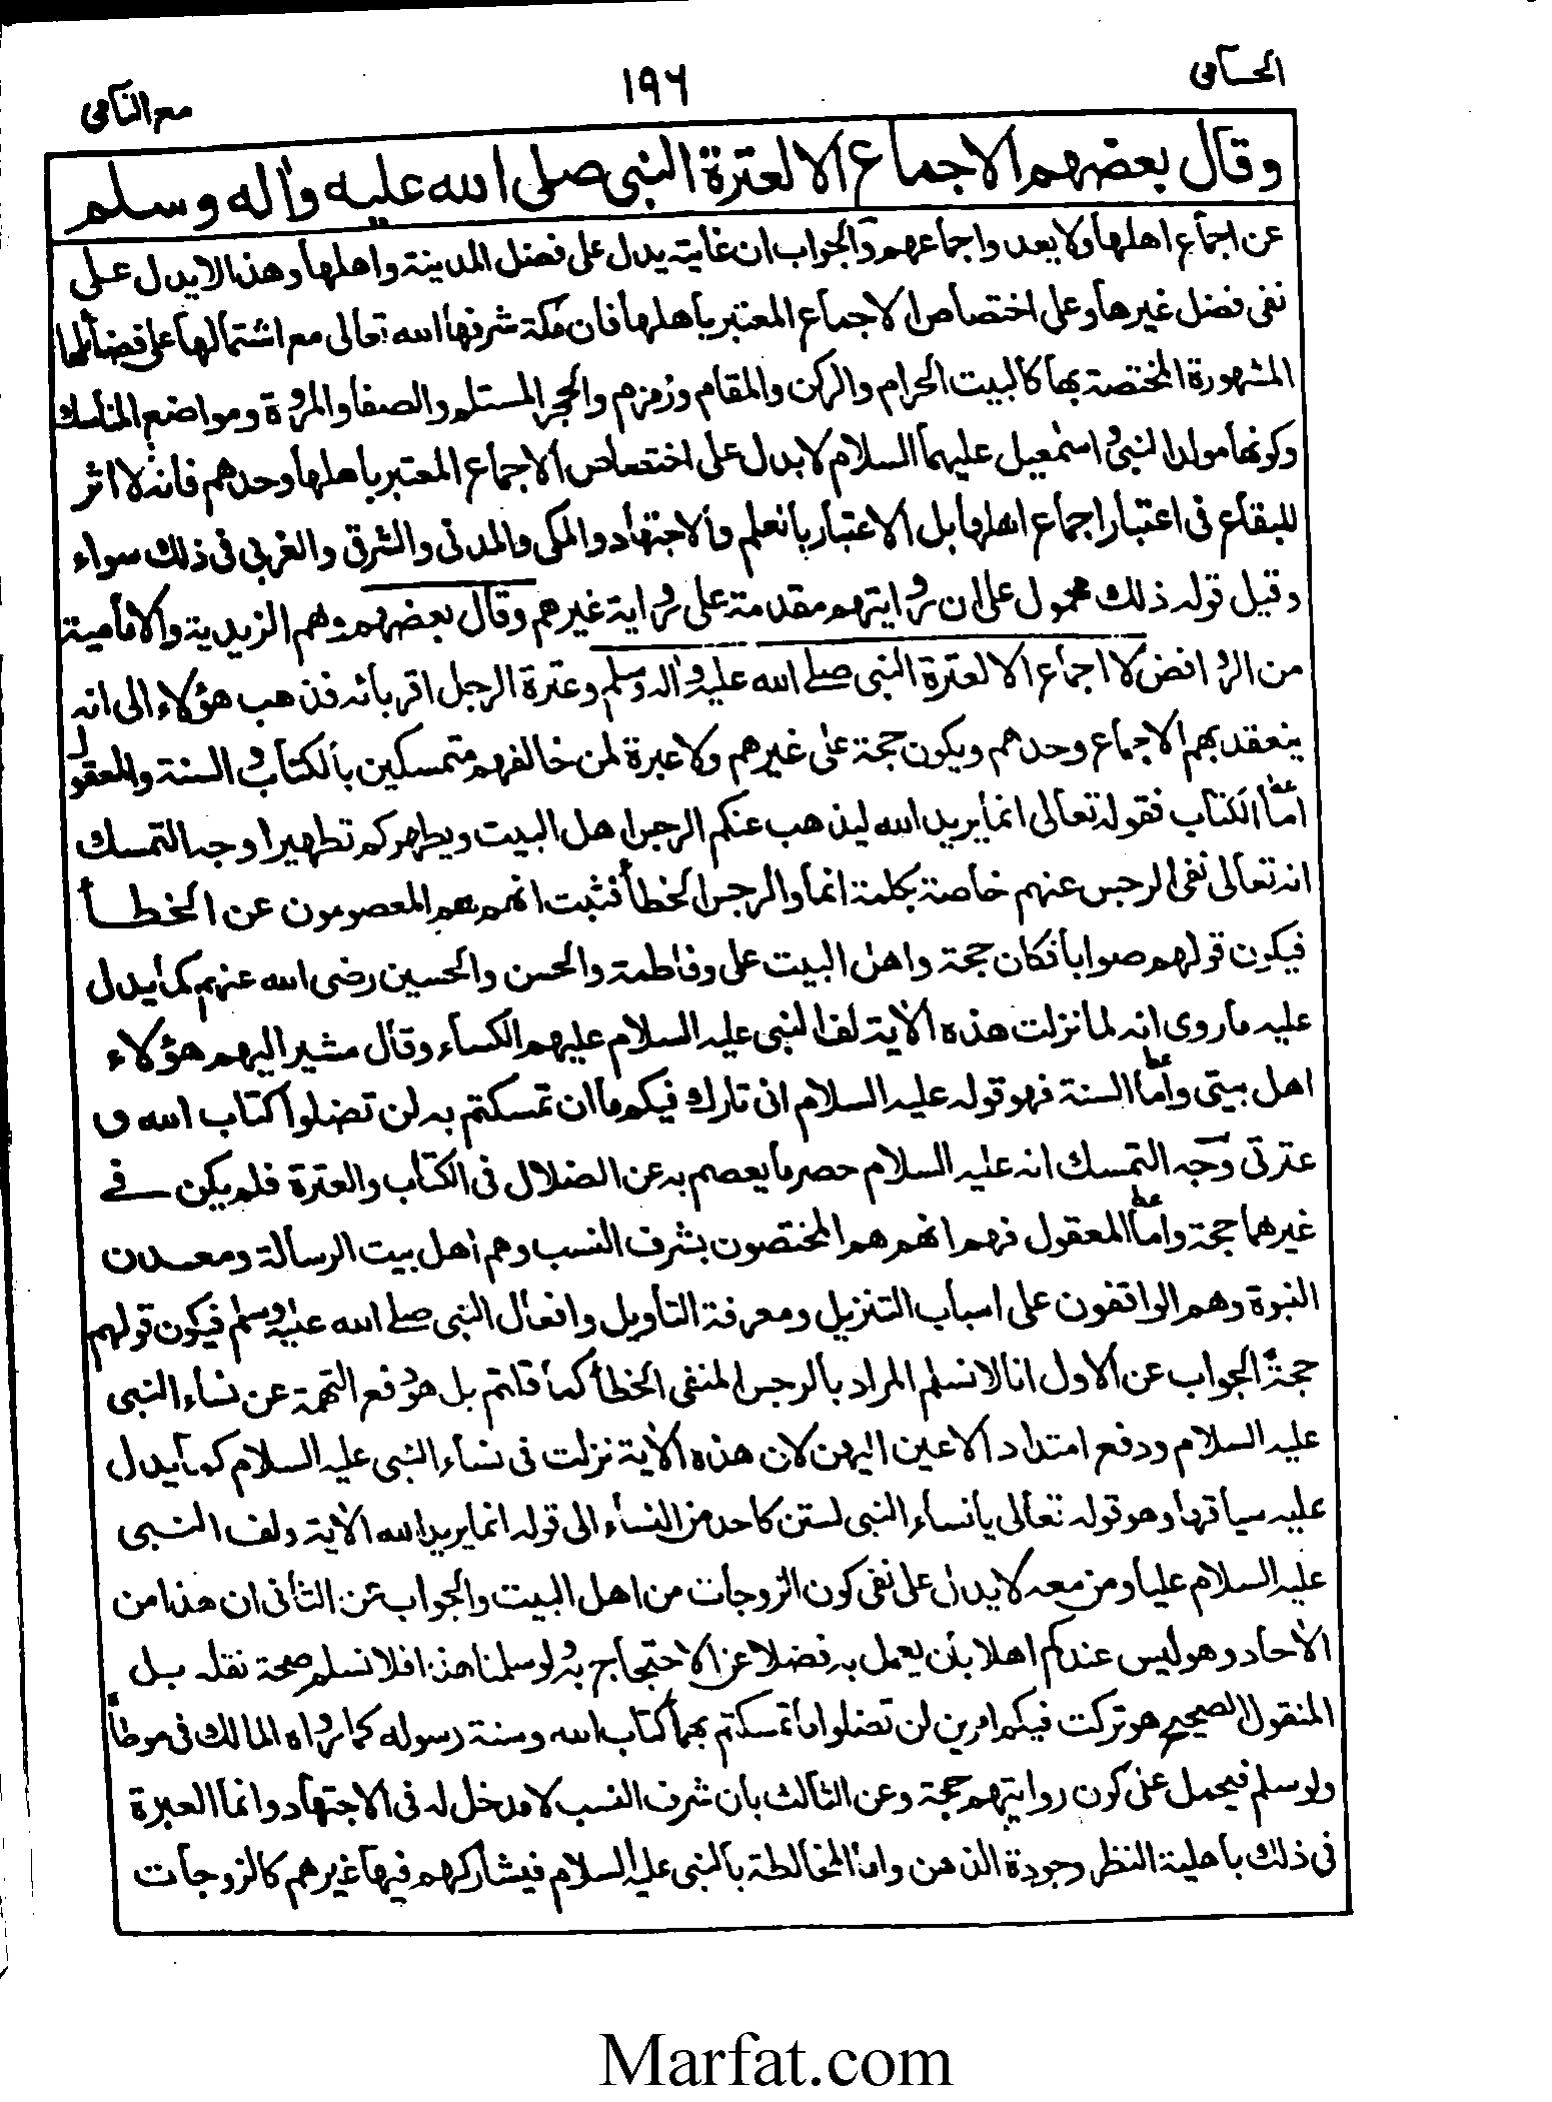 الحسامی
۱۹۶
مع النامی
وقال بعضهم لا اجماع الا لعترة النبی صلی الله علیه واٰله وسلم
عن اجماع اهلها ولا یعد واجماعهم والجواب ان غایته یدل علی فضل المدینة واهلها وهذا لا یدل علی
نفی فضل غیرها وعلی اختصاص الاجماع المعتبر باهلها فان مکة شرفها الله تعالی مع اشتمالها علی فضائلها
المشهورة المختصة بها کالبیت الحرام والرکن والمقام وزمزم والحجر المستلم والصفا والمروة ومواضع المناسك
وکونها مولد النبی واسمٰعیل علیهما السلام لا یدل علی اختصاص الاجماع المعتبر باهلها وحدهم فانه لا اثر
للبقاع فی اعتبار اجماع اهلها بل الاعتبار بالعلم والاجتهاد والمکی والمدنی والشرقی والغربی فی ذلك سواء
وقیل قوله ذلك محمول علی ان روایتهم مقدمة علی روایة غیرهم وقال بعضهم وهم الزیدیة والامامیة
من الروافض لا اجماع الا لعترة النبی صلے الله علیه واٰله وسلم وعترة الرجل اقربائه فذهب هؤلاء الی انه
ینعقد بهم الاجماع وحدهم ویکون حجة علی غیرهم ولا عبرة لمن خالفهم متمسکین بالکتاب والسنة والمعقول
اما الکتاب فقوله تعالی انما یرید الله لیذهب عنکم الرجس اهل البیت ویطهرکم تطهیرا وجه التمسك
انه تعالی نفی الرجس عنهم خاصة بکلمة انما والرجس الخطأ فثبت انهم هم المعصومون عن الخطأ
فیکون قولهم صوابا فکان حجة واهل البیت علی وفاطمة والحسن والحسین رضی الله عنهم کما یدل
علیه ما روی انه لما نزلت هذه الاٰیة لف النبی علیه السلام علیهم الکساء وقال مشیرا الیهم هؤلاء
اهل بیتی واما السنة فهو قوله علیه السلام انی تارك فیکم ما ان تمسکتم به لن تضلوا کتاب الله و
عترتی وجه التمسك انه علیه السلام حصر ما یعصم به عن الضلال فی الکتاب والعترة فلم یکن فے
غیرهما حجة واما المعقول فهم انهم هم المختصون بشرف النسب وهم اهل بیت الرسالة ومعدن
النبوة وهم الواقفون علی اسباب التنزیل ومعرفة التاویل وافعال النبی صلے الله علیه وسلم فیکون قولهم
حجة الجواب عن الاول انا لا نسلم المراد بالرجس المنفی الخطأ کما قلتم بل هو دفع التهمة عن نساء النبی
علیه السلام ودفع امتداد الاعین الیهن لان هذه الاٰیة نزلت فی نساء النبی علیه السلام کما یدل
علیه سیاقها وهو قوله تعالی یا نساء النبی لستن کاحد من النساء الی قوله انما یرید الله الاٰیة ولف النبی
علیه السلام علیا ومن معه لا یدل علی نفی کون الزوجات من اهل البیت والجواب عن الثانی ان هذا من
الاٰحاد وهو لیس عندکم اهلا بان یعمل به فضلا عن الاحتجاج به ولو سلمنا هذا فلا نسلم صحة نقله بل
المنقول الصحیح هو ترکت فیکم امرین لن تضلوا ما تمسکتم بهما کتاب الله وسنة رسوله کما رواه المالك فی موطأ
ولو سلم فیحمل علی کون روایتهم حجة وعن الثالث بان شرف النسب لا مدخل له فی الاجتهاد وانما العبرة
فی ذلك باهلیة النظر وجودة الذهن واما المخالطة بالنبی علیه السلام فیشارکهم فیها غیرهم کالزوجات
Marfat.com